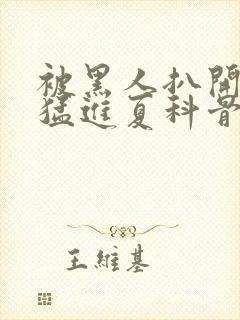 被黑人扒開
猛進夏科骨
王維基